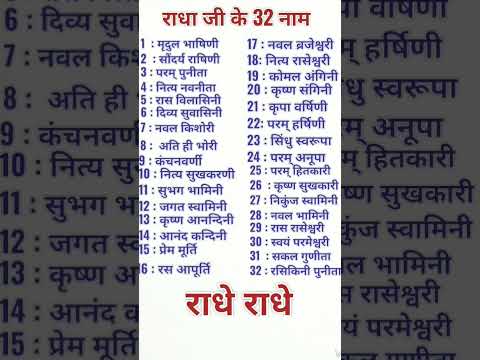 राधा जी के 32 नाम
1 : मृदुल भाषिणी
2 : सौंदर्य राषिणी
3 : परम् पुनीता
4 : नित्य नवनीता
5 : रास विलासिनी
6 : दिव्य सुवासिनी
7 : नवल किशोरी
8 : अति ही भोरी
9 : कंचनवर्णी
10 : नित्य सुखकरणी
11 : सुभग भामिनी
12 : जगत स्वामिनी
13 : कृष्ण आनन्दिनी
14 : आनंद कन्दिनी
15 : प्रेम मूर्ति
16 : रस आपूर्ति
17 : नवल ब्रजेश्वरी
18: नित्य रासेश्वरी
19 : कोमल अंगिनी
20 : कृष्ण संगिनी
21 : कृपा वर्षिणी
22: परम् हर्षिणी
23 : सिंधु स्वरूपा
24 : परम् अनूपा
25 : परम् हितकारी
26 : कृष्ण सुखकारी
27 : निकुंज स्वामिनी
28 : नवल भामिनी
29 : रास रासेश्वरी
30 : स्वयं परमेश्वरी
31 : सकल गुणीता
32 : रसिकिनी पुनीता
राधे राधे
6 : दिव्य सु
7 : नवल कि
8 : अति ही
9 : कंचनव
10 : नित्य
11 : सुभग
12 : जगत
13 : कृष्ण
14 : आनंद
15 : प्रेम मूर्ति
म् हर्षिणी
धु स्वरूपा
म् अनूपा
हितकारी
सुखकारी
ज स्वामिनी
भामिनी
रासेश्वरी
परमेश्वरी